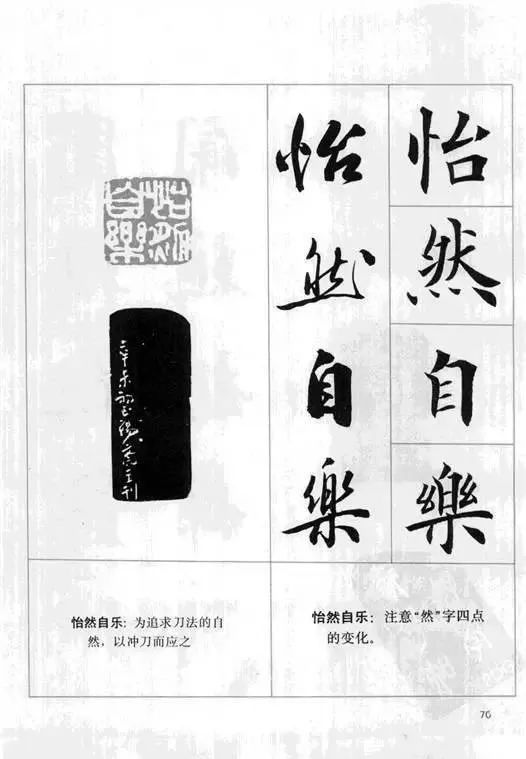 怡然自樂
怡然自樂
怡然自樂
辛未初
刊
怡然自乐：为追求刀法的自
然，以冲刀而应之
怡然自乐：注意“然”字四点
的变化。
76